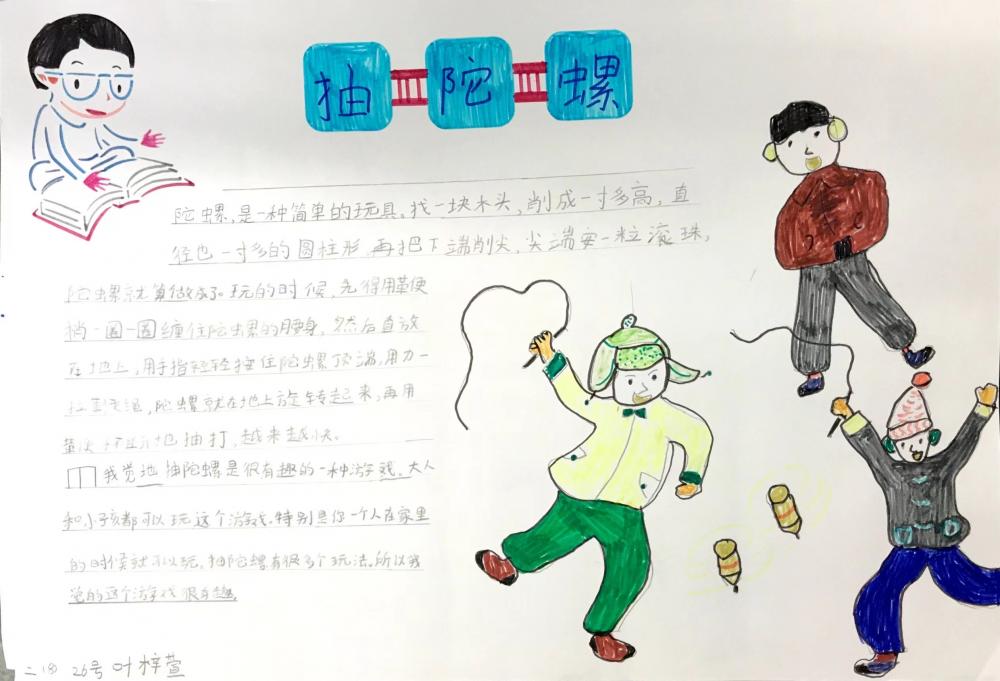 抽陀螺
陀螺，是一种简单的玩具。找一块木头，削成一寸多高，直
径也一寸多的圆柱形，再把下端削尖，尖端安一粒滚珠，
陀螺就算做成了。玩的时候，先得用革便
梢一圈一圈缠住陀螺的腰身，然后直放
在地上，用手指轻轻按住陀螺顶端，用力一
拉，陀螺就在地上旋转起来，再用
地抽打，越来越快。
我觉地抽陀螺是很有趣的一种游戏。大人
和小孩都可以玩这个游戏。特别是你一个人在家里
的时候就可以玩。抽陀螺有很多个玩法。所以我
觉的这个游戏很有趣。
26号 叶梓萱